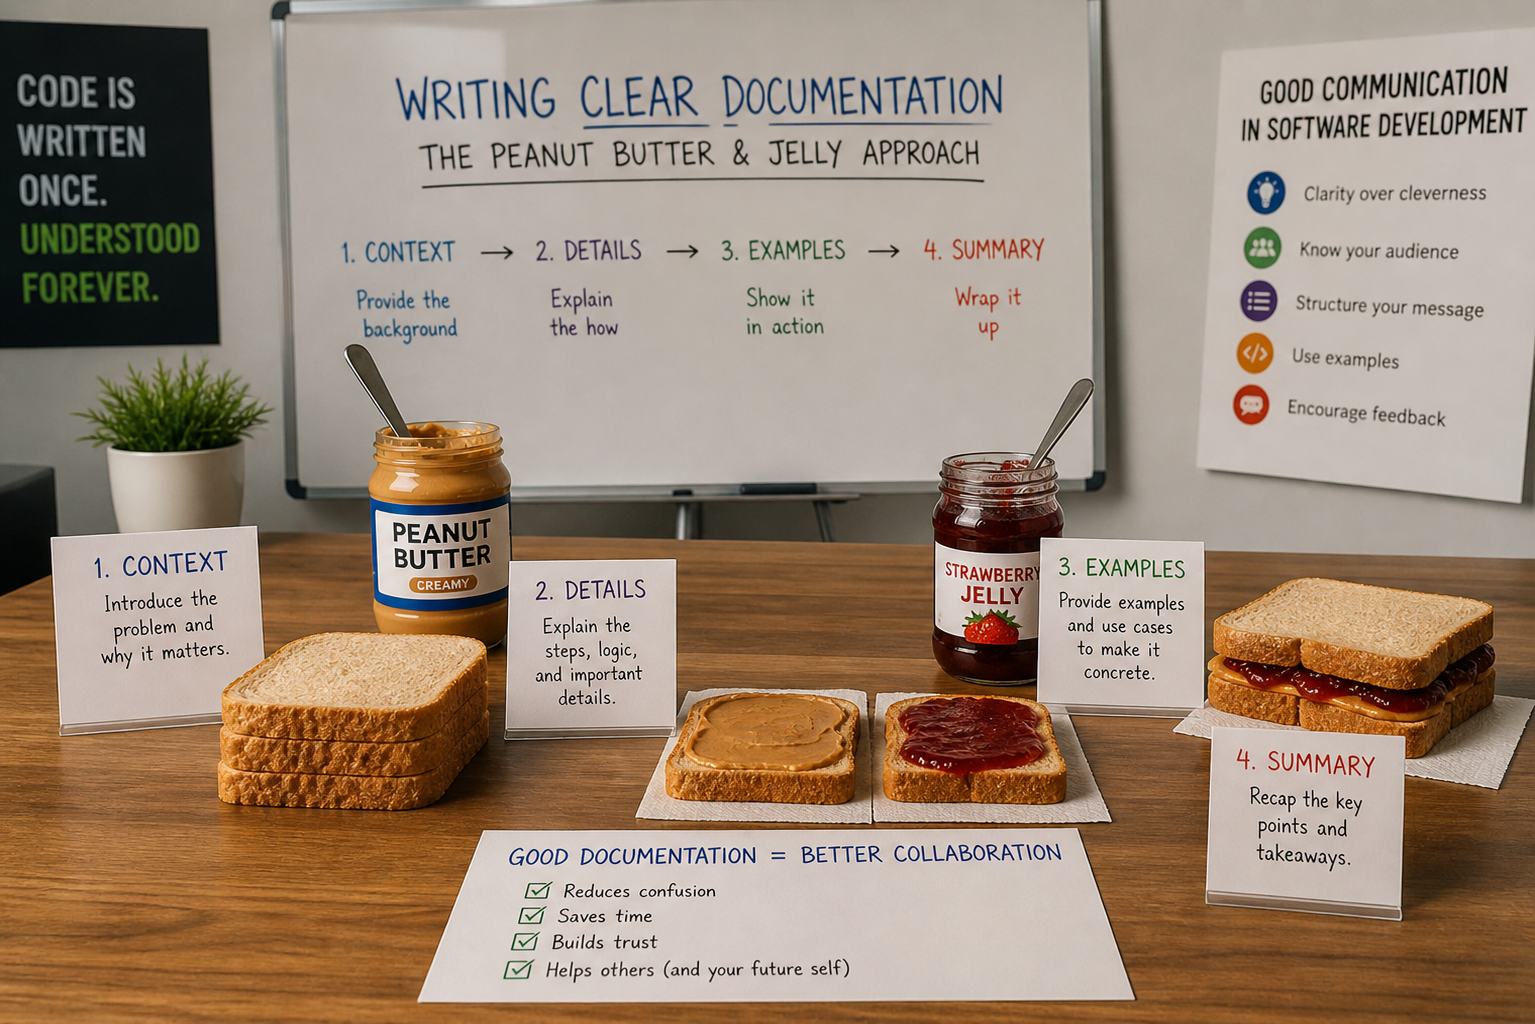 CODE IS
WRITTEN
ONCE.
UNDERSTOOD
FOREVER.
WRITING CLEAR DOCUMENTATION
THE PEANUT BUTTER & JELLY APPROACH
1. CONTEXT → 2. DETAILS → 3. EXAMPLES → 4. SUMMARY
Provide the
background
Explain
the how
Show it
in action
Wrap it
up
GOOD COMMUNICATION
IN SOFTWARE DEVELOPMENT
Clarity over cleverness
Know your audience
Structure your message
Use examples
Encourage feedback
1. CONTEXT
Introduce the
problem and
why it matters.
PEANUT
BUTTER
CREAMY
2. DETAILS
Explain the
steps, logic,
and important
details.
STRAWBERRY
JELLY
3. EXAMPLES
Provide examples
and use cases
to make it
concrete.
4. SUMMARY
Recap the key
points and
takeaways.
GOOD DOCUMENTATION = BETTER COLLABORATION
Reduces confusion
Saves time
Builds trust
Helps others (and your future self)